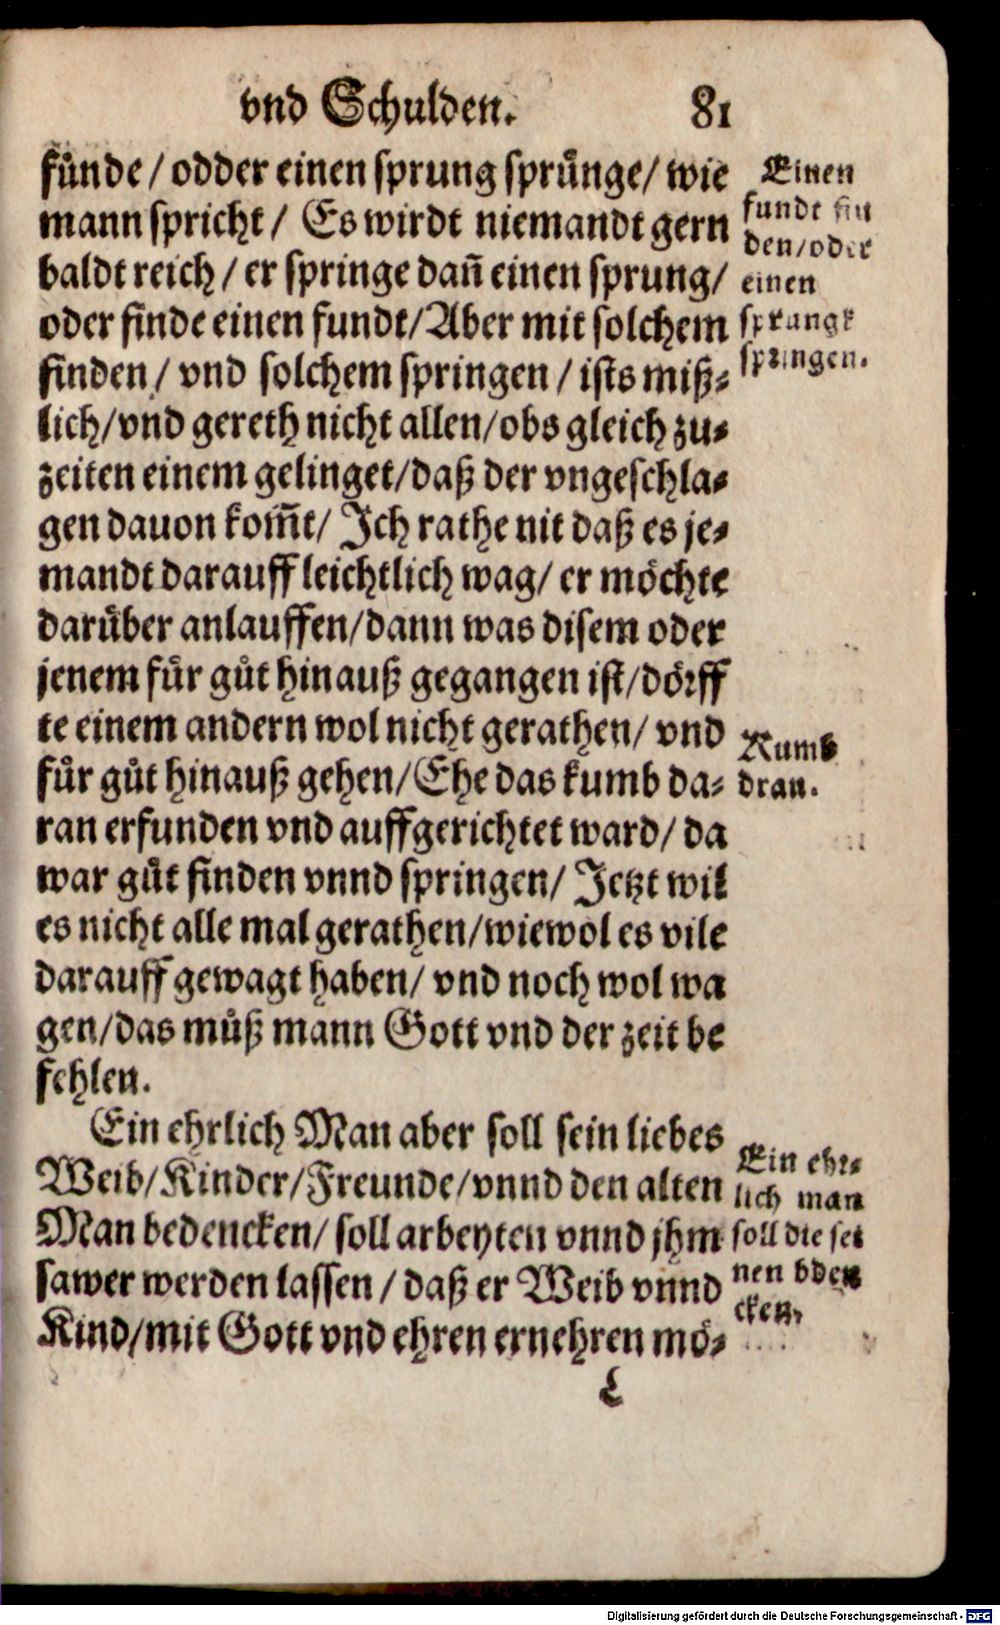 vnd Schulden. 81
fünde / odder einen sprung sprünge / wie
mann spricht / Es wirdt niemandt gern
baldt reich / er springe dañ einen sprung /
oder finde einen fundt / Aber mit solchem
finden / vnd solchem springen / ists miß⸗
lich / vnd gereth nicht allen / obs gleich zu⸗
zeiten einem gelinget / daß der vngeschla⸗
gen dauon kom̃t / Ich rathe nit daß es je⸗
mandt darauff leichtlich wag / er möchte
darüber anlauffen / dann was disem oder
jenem für gůt hinauß gegangen ist / dörff
te einem andern wol nicht gerathen / vnd
für gůt hinauß gehen / Ehe das kumb da⸗
ran erfunden vnd auffgerichtet ward / da
war gůt finden vnnd springen / Jetzt wil
es nicht alle mal gerathen / wiewol es vile
darauff gewagt haben / vnd noch wol wa
gen / das můß mann Gott vnd der zeit be
fehlen.
Ein ehrlich Man aber soll sein liebes
Weib / Kinder / Freunde / vnnd den alten
Man bedencken / soll arbeyten vnnd jhm
sawer werden lassen / daß er Weib vnnd
Kind / mit Gott vnd ehren ernehren mö⸗
L
Einen
fundt fin
den / oder
einen
sprungk
springen.
Kumb
dran.
Ein ehr⸗
lich man
soll die sei
nen bden
cken.
Digitalisierung gefördert durch die Deutsche Forschungsgemeinschaft - DFG